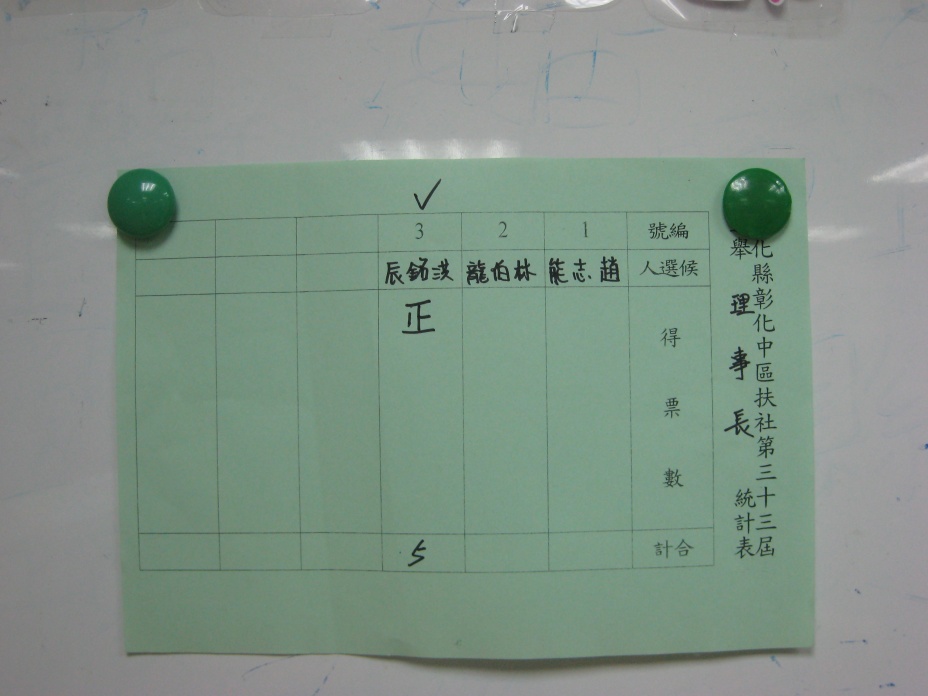 化縣彰化中區扶社第三十三屆
舉 理事長 統計表
✓
編號 1 2 3
候選人 趙志能 林伯龍 洪銘辰
得票數 正
合計 5